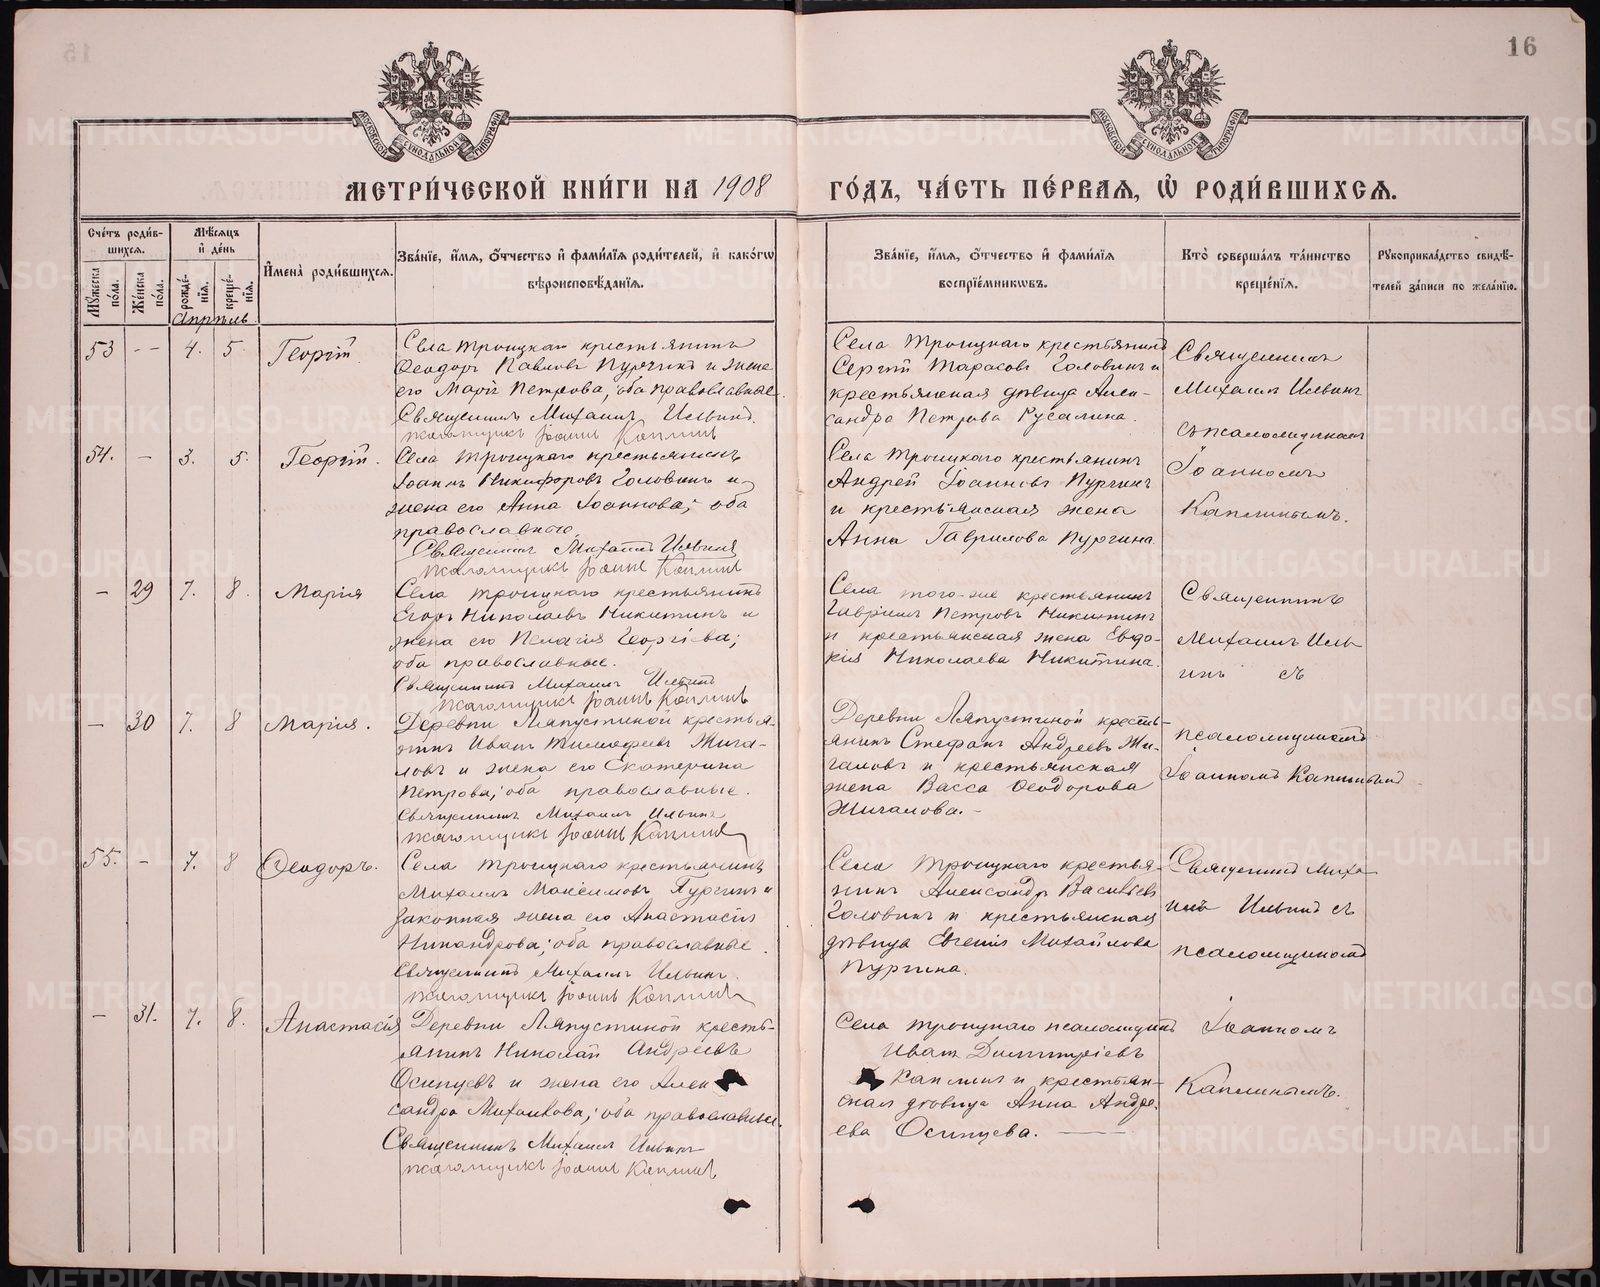 16
МЕТРИ́ЧЕСКОЙ КНИ́ГИ НА 1908 ГО́ДЪ, ЧА́СТЬ ПЕ́РВАЯ, Ѡ҆ РОДИ́ВШИХСЯ.
Сче́тъ роди́в-
шихся.
Мꙋ́жеска по́ла.
Же́нска по́ла.
Мѣ́сяцъ
и҆ де́нь
рожде́-нїя.
креще́-нїя.
И҆мена̀ роди́вшихся.
Зва́нїе, и҆́мя, ѻ҆́тчество и҆ фами́лїя роди́телей, и҆ како́гѡ
вѣроисповѣ́данїя.
Зва́нїе, и҆́мя, ѻ҆́тчество и҆ фами́лїя
воспрїе́мникѡвъ.
Кто̀ соверша́лъ та́инство
креще́нїя.
Рꙋкоприкла́дство свидѣ́-
телей за́писи по жела́нїю.
Апрѣль
53 -- 4. 5. Георгій
Села Троицкаго крестьянинъ
Ѳеодоръ Павловъ Пургинъ и жена
его Марія Петрова; оба православные.
Священникъ Михаилъ Ильинъ.
псаломщикъ Іоаннъ Каплинъ
Села Троицкаго крестьянинъ
Сергій Тарасовъ Головинъ и
крестьянская дѣвица Алек-
сандра Петрова Русалина.
Священникъ
Михаилъ Ильинъ
съ псаломщикомъ
Іоанномъ
Каплинымъ.
54. - 3. 5. Георгій.
Села Троицкаго крестьянинъ
Іоаннъ Никифоровъ Головинъ и
жена его Анна Іоаннова; оба
православные.
Священникъ Михаилъ Ильинъ
псаломщикъ Іоаннъ Каплинъ
Села Троицкаго крестьянинъ
Андрей Іоанновъ Пургинъ
и крестьянская жена
Анна Гаврилова Пургина
- 29 7. 8. Марія
Села Троицкаго крестьянинъ
Егоръ Николаевъ Никитинъ и
жена его Пелагія Георгіева;
оба православные.
Священникъ Михаилъ Ильинъ
псаломщикъ Іоаннъ Каплинъ
Села того-же крестьянинъ
Гавріилъ Петровъ Никитинъ
и крестьянская жена Евдо-
кія Николаева Никитина.
Священникъ
Михаилъ Иль-
инъ съ
- 30 7. 8 Марія.
Деревни Ляпустиной крестья-
нинъ Иванъ Тимофеевъ Жига-
ловъ и жена его Екатерина
Петрова; оба православные.
Священникъ Михаилъ Ильинъ
псаломщикъ Іоаннъ Каплинъ
Деревни Ляпустиной кресть-
янинъ Стефанъ Андреевъ Жи-
галовъ и крестьянская
жена Васса Ѳеодорова
Жигалова.-
псаломщикомъ
Іоанномъ Каплинымъ
55. - 7. 8 Ѳеодоръ.
Села Троицкаго крестьянинъ
Михаилъ Максимовъ Пургинъ и
законная жена его Анастасія
Никандрова; оба православные.
Священникъ Михаилъ Ильинъ.
псаломщикъ Іоаннъ Каплинъ
Села Троицкаго крестья-
нинъ Александръ Васильевъ
Головинъ и крестьянская
дѣвица Евгенія Михайлова
Пургина.
Священникъ Миха-
илъ Ильинъ съ
псаломщикомъ
- 31. 7. 8. Анастасія
Деревни Ляпустиной кресть-
янинъ Николай Андреевъ
Осинцевъ и жена его Алек-
сандра Михайлова; оба православные.
Священникъ Михаилъ Ильинъ
псаломщикъ Іоаннъ Каплинъ
Села Троицкаго псаломщикъ
Иванъ Димитріевъ
Каплинъ и крестьян-
ская дѣвица Анна Андре-
ева Осинцева.
Іоанномъ
Каплинымъ.
METRIKI.GASO-URAL.RU